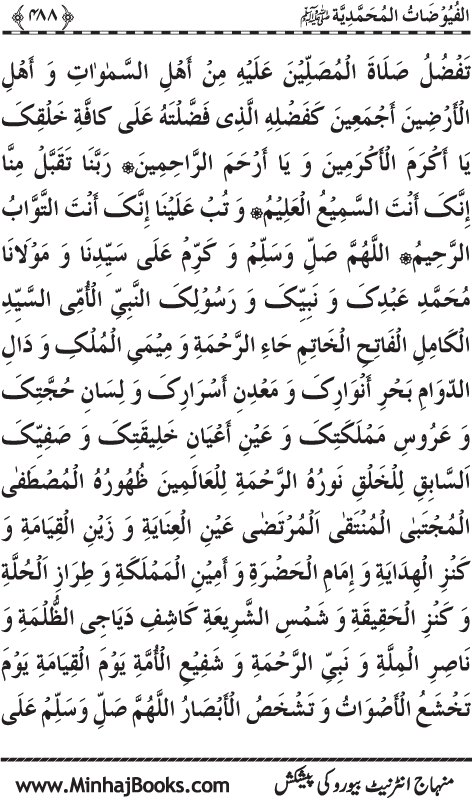 الفُيُوْضَاتُ المُحَمَّدِيَّة ﷺ ﴿۴۸۸﴾
تَفْضُلُ صَلَاةَ الْمُصَلِّيْنَ عَلَيْهِ مِنْ أَهْلِ السَّمٰوَاتِ وَ أَهْلِ
الْأَرْضِيْنَ أَجْمَعِينَ كَفَضْلِهِ الَّذِی فَضَّلْتَهُ عَلَی كَافَّةِ خَلْقِکَ
يَا أَكْرَمَ الْأَكْرَمِينَ وَ يَا أَرْحَمَ الرَّاحِمِينَ۞ رَبَّنَا تَقَبَّلْ مِنَّا
إِنَّکَ أَنْتَ السَّمِيْعُ الْعَلِيْمُ۞ وَ تُبْ عَلَيْنَا إِنَّکَ أَنْتَ التَّوَّابُ
الرَّحِيمُ۞ اللَّهُمَّ صَلِّ وَسَلِّمْ وَ كَرِّمْ عَلَی سَيِّدِنَا وَ مَوْلَانَا
مُحَمَّدٍ عَبْدِکَ وَ نَبِيِّکَ وَ رَسُوْلِکَ النَّبِيِّ الْأُمِّی السَّيِّدِ
الْكَامِلِ الْفَاتِحِ الْخَاتِمِ حَاءِ الرَّحْمَةِ وَ مِيْمَیِ الْمُلْکِ وَ دَالِ
الدَّوَامِ بَحْرِ أَنْوَارِکَ وَ مَعْدِنِ أَسْرَارِکَ وَ لِسَانِ حُجَّتِکَ
وَ عَرُوسِ مَمْلَكَتِکَ وَ عَيْنِ أَعْيَانِ خَلِيقَتِکَ وَ صَفِيِّکَ
اَلسَّابِقِ لِلْخَلْقِ نَورُهُ الرَّحْمَةِ لِلْعَالَمِينَ ظُهُورُهُ الْمُصْطَفٰی
الْمُجْتَبٰی الْمُنْتَقٰی اَلْمُرْتَضٰی عَيْنِ الْعِنَايَةِ وَ زَيْنِ الْقِيَامَةِ وَ
كَنْزِ الْهِدَايَةِ وَ إِمَامِ الْحَضْرَةِ وَ أَمِيْنِ الْمَمْلَكَةِ وَ طِرَازِ اَلْحُلَّةِ
وَ كَنْزِ الْحَقِيقَةِ وَ شَمْسِ الشَّرِيعَةِ كَاشِفِ دَيَاجِی الظُّلْمَةِ وَ
نَاصِرِ الْمِلَّةِ وَ نَبِيِّ الرَّحْمَةِ وَ شَفِيْعِ الْأُمَّةِ يَوْمَ الْقِيَامَةِ يَوْمَ
تَخْشَعُ الْأَصْوَاتُ وَ تَشْخَصُ الْأَبْصَارُ اللَّهُمَّ صَلِّ وَسَلِّمْ عَلَی
منہاج انٹرنیٹ بیورو کی پیشکش www.MinhajBooks.com